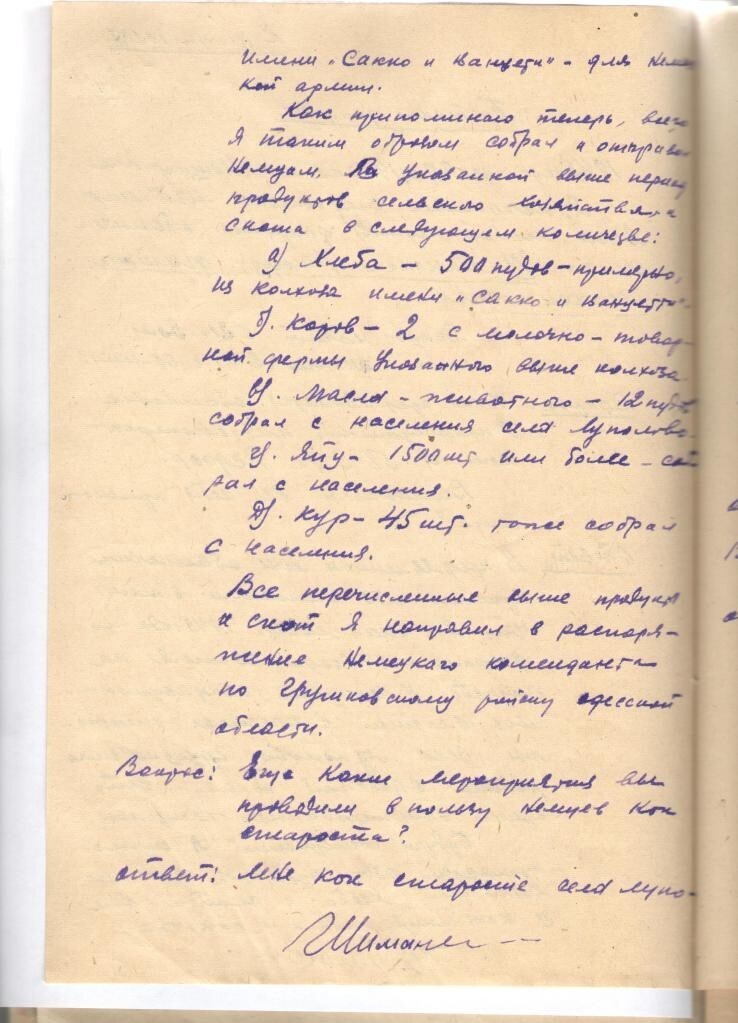 имени "Сакко и Ванцети" - для немец
кой армии.
Как припоминаю теперь, всего
я таким образом собрал и отправил
немцам. За указанной выше период
продуктов сельского хозяйства и
скота в следующем количезве:
а) Хлеба - 500 пудов - примерно,
из колхоза имени "Сакко и Ванцетти".
б). Коров - 2 с молочно - товар-
ной фермы указанного выше колхоза
в). Масла - животного - 12 пудов
собрал с населения села Луполово.
г). Яйц - 1500 шт или более - соб
рал с населения.
д). Кур - 45 шт. тоже собрал
с населния.
Все перечисленные выше продукты
и скот я направил в распоря-
жение немецкаго коменданта
по Грушковскому району одесской
области.
Вопрос: Еще какие мероприятия вы
проводили в пользу немцев как
староста?
ответ: мне как старосте села Лупо-